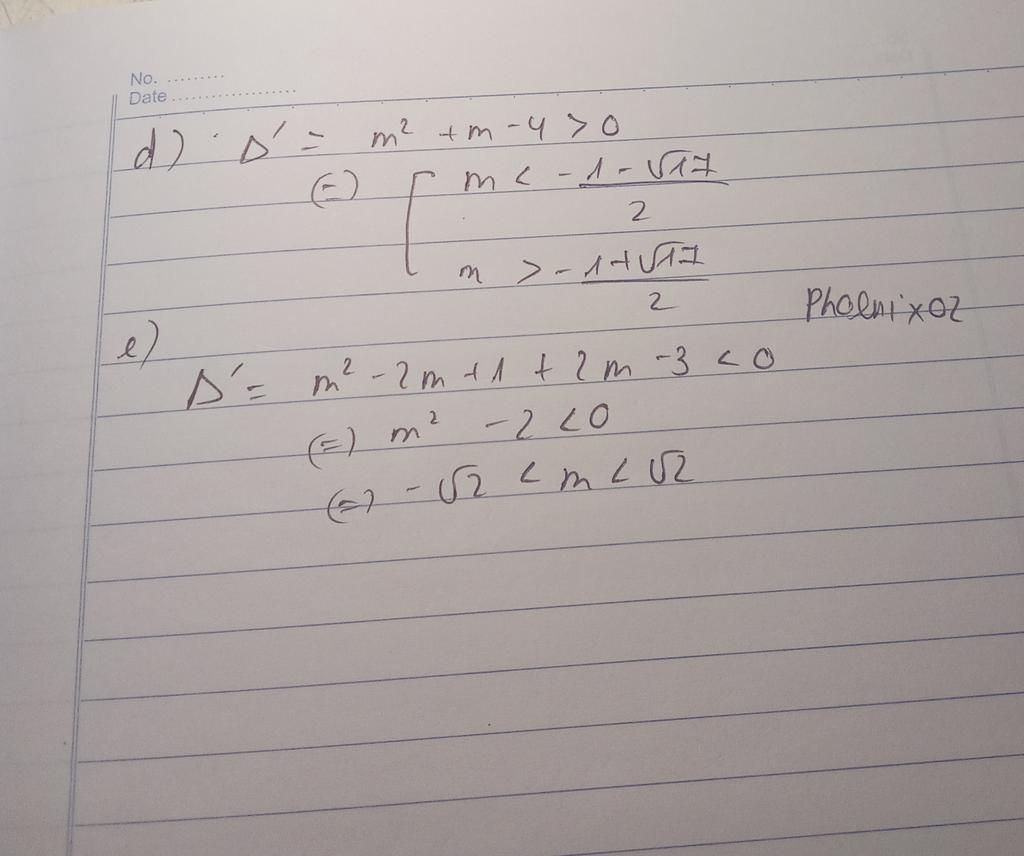 No. .........
Date ....................
d) Δ' = m² + m - 4 > 0
(=) [ m < -1 - √17 / 2
m > -1 + √17 / 2
Phoenix02
e)
Δ' = m² - 2m + 1 + 2m - 3 < 0
(=) m² - 2 < 0
(=) - √2 < m < √2